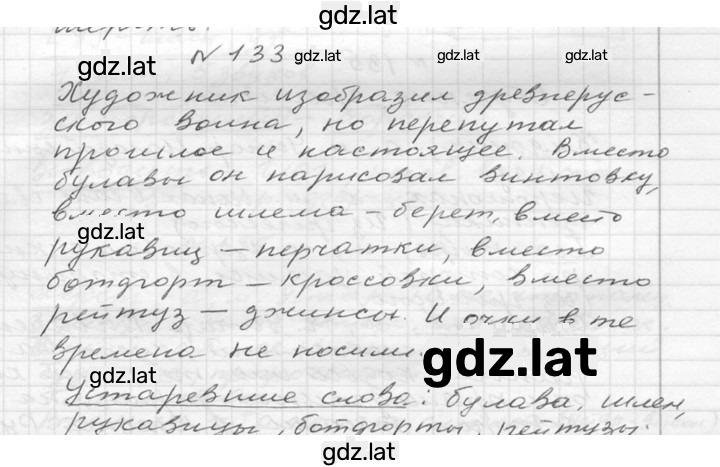 gdz.lat
№ 133
gdz.lat gdz.lat gdz.lat gdz.lat
Художник изобразил древнерус-
ского воина, но перепутал
прошлое и настоящее. Вместо
булавы он нарисовал винтовку,
вместо шлема - берет, вместо
gdz.lat
рукавиц - перчатки, вместо
ботфорт - кроссовки, вместо
рейтуз - джинсы. И очки в те
времена не носили
gdz.lat
gdz.lat
Устаревшие слова: булава, шлем,
рукавицы, ботфорты, рейтузы.
gdz.lat